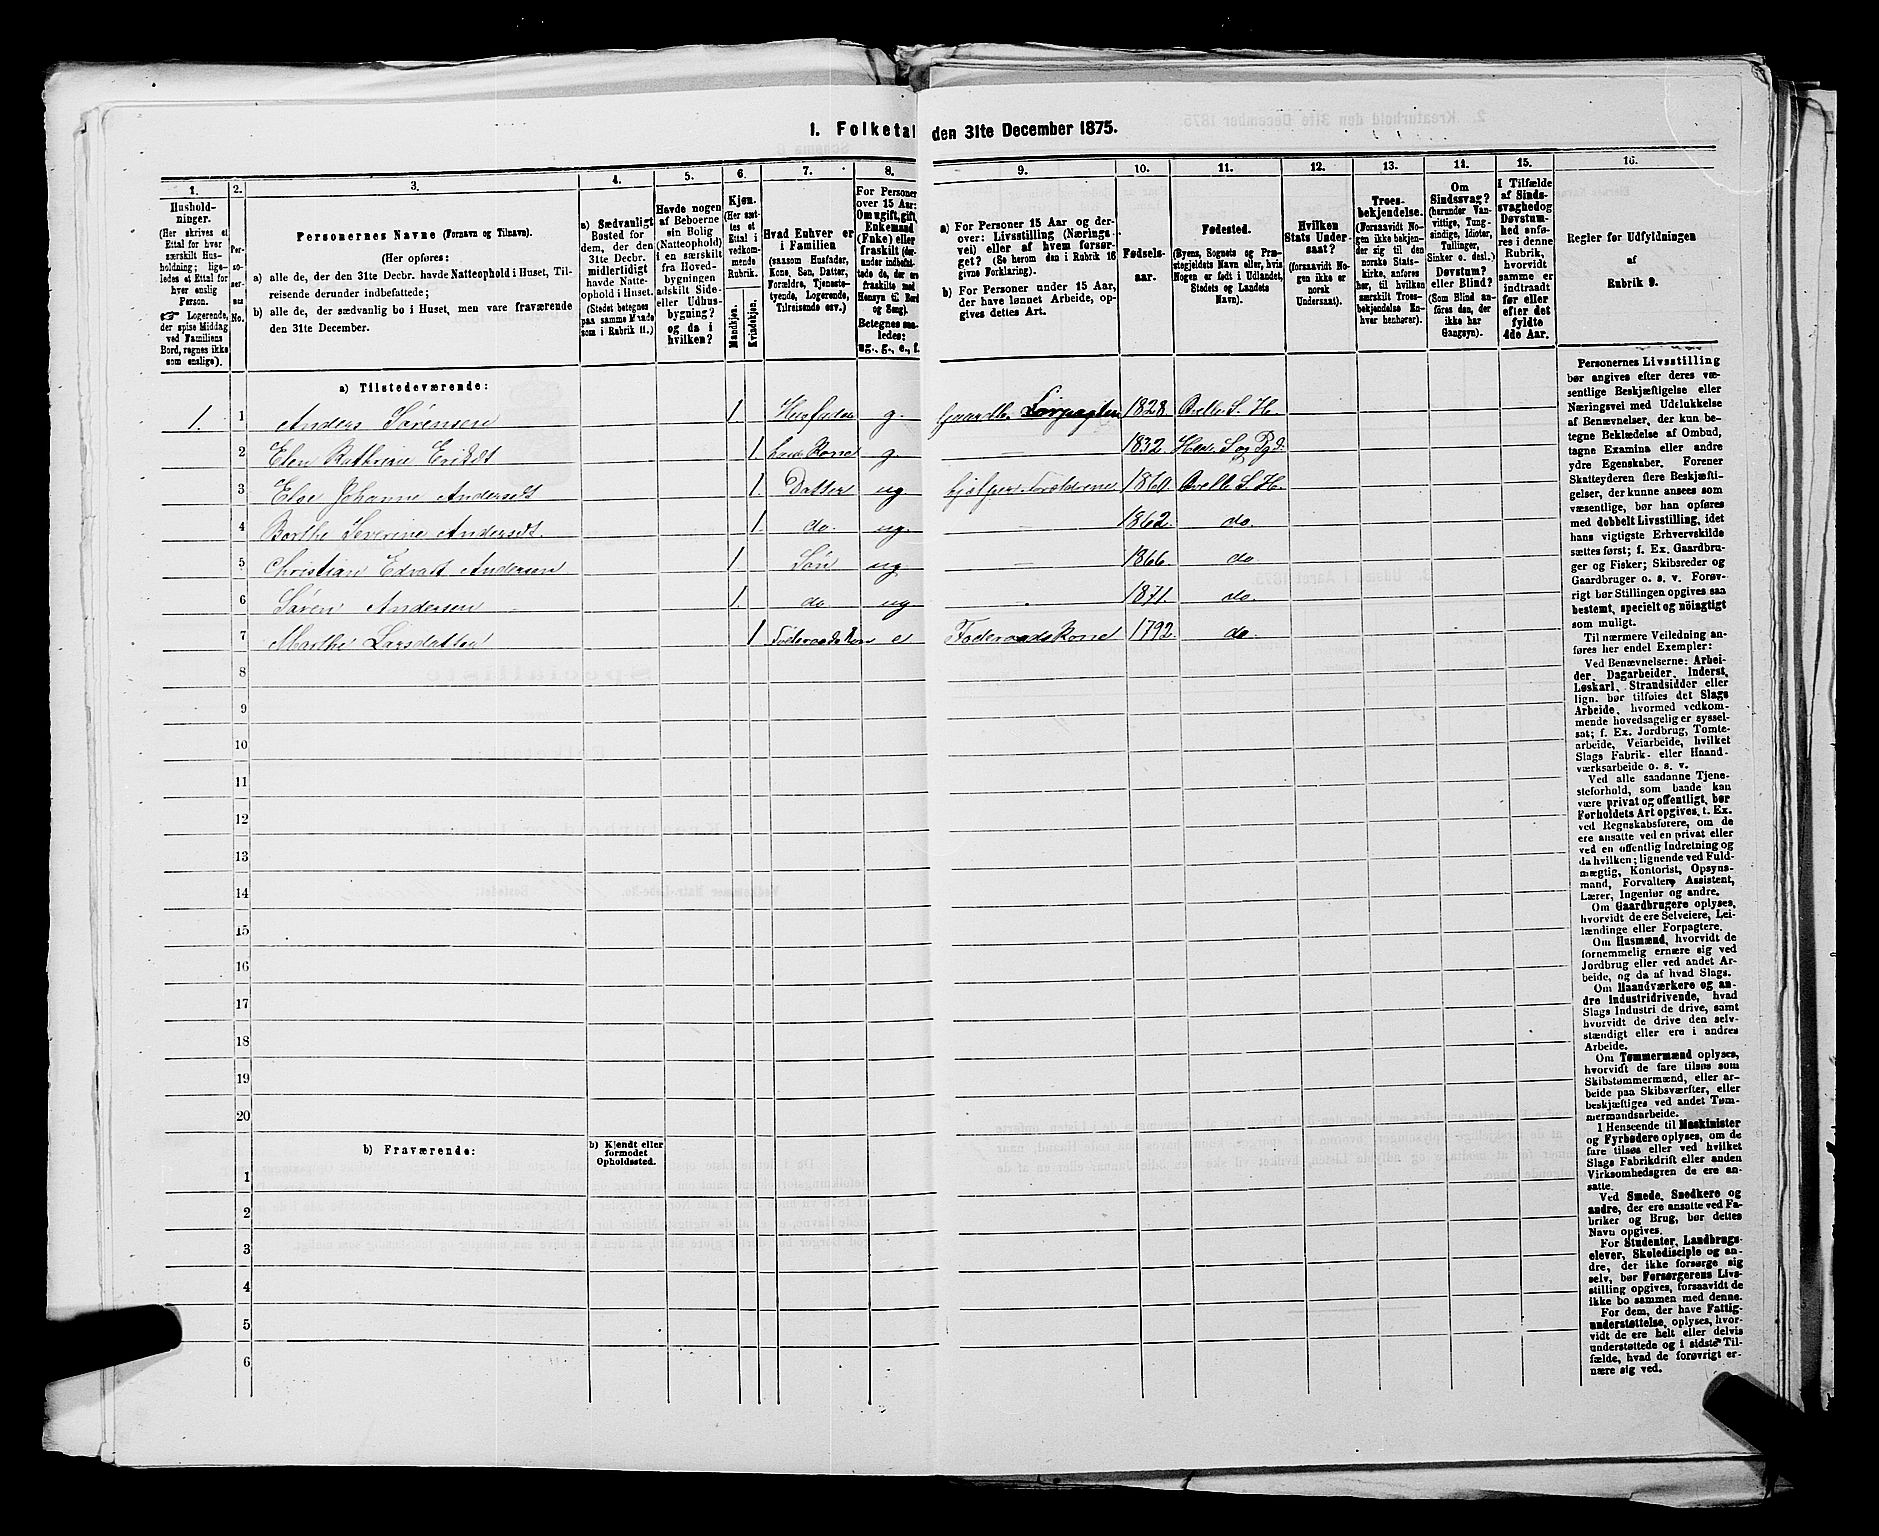 1. Folketal den 31te December 1875.
1.
2.
3.
4.
5.
6.
7.
8.
9.
10.
11.
12.
13.
14.
15.
16.
Husholdninger.
(Her skrives et
Ettal for hver
særskilt Husholdning;
ligeledes et Ettal for
hver enslig
Person.
☞ Logerende,
der spise Middag
ved Familiens
Bord, regnes ikke
som enslige).
Personernes No.
Personernes Navne (Fornavn og Tilnavn).
(Her opføres:
a) alle de, der den 31te Decbr. havde Natteophold i Huset, Tilreisende
derunder indbefattede;
b) alle de, der sædvanlig bo i Huset, men vare fraværende
den 31te December.
a) Sædvanligt
Bosted for
dem, der den
31te Decbr.
midlertidigt
havde Natteophold
i Huset.
(Stedet betegnes
paa samme Maade
som i Rubrik 11.)
Havde nogen
af Beboerne
sin Bolig
(Natteophold)
i en særskilt
fra Hovedbygningen
adskilt Side-
eller Udhusbygning?
og da i
hvilken?
Kjøn.
(Her sættes
et
Ettal i
vedkommende
Rubrik.
Mandkjøn.
Kvindekjøn.
Hvad Enhver er
i Familien
(saasom Husfader,
Kone, Søn, Datter,
Forældre, Tjenestetyende,
Logerende,
Tilreisende osv.)
For Personer
over 15 Aar:
Om ugift, gift,
Enkemand
(Enke) eller
fraskilt
Betegnes saaledes:
ug., g., e., f.
a) For Personer 15 Aar og derover:
Livsstilling (Næringsvei)
eller af hvem forsørget?
(Se herom den i Rubrik 16
givne Forklaring).
b) For Personer under 15 Aar,
der have lønnet Arbeide, opgives
dettes Art.
Fødselsaar.
Fødested.
(Byens, Sognets og Præstegjeldets
Navn eller, hvis
Nogen er født i Udlandet,
Stedets og Landets
Navn).
Hvilken
Stats Undersaat?
(forsaavidt Nogen
ikke er
norsk
Undersaat).
Troesbekjendelse.
(Forsaavidt Nogen
ikke bekjender
sig til den
norske Statskirke,
anføres
her, til hvilken
særskilt Troesbekjendelse
Enhver
henhører).
Om
Sindssvag?
(herunder Vanvittige,
Tungsindige,
Idioter,
Tullinger,
Sinker o. desl.)
Døvstum?
eller Blind?
(Som Blind anføres
den, der
ikke har
Gangsyn).
I Tilfælde
af Sindssvaghed
og
Døvstumhed
anføres
i denne
Rubrik,
hvorvidt
samme er
indtraadt
før eller
efter det
fyldte
4de Aar.
Regler for Udfyldningen
af
Rubrik 9.
a) Tilstedeværende:
1. 1 Anders Sørensen 1. Husfader g. Gaardbr. Forpagter 1828
2 Elen Kathrine Eriksdt 1. hans Kone g. — 1832
3 Else Johanne Andersdt 1. Datter ug hjelper Forældrene 1860
4 Berthe Severine Andersdt. 1. do. ug. — 1862. do
5 Christian Edvart Andersen 1 Søn ug. — 1866. do
6 Søren Andersen 1. do ug. 1871. do.
7 Marthe Larsdatter 1 Føderaadskone e Føderaadskone 1792. do.
8
9
10
11
12
13
14
15
16
17
18
19
20
b) Fraværende:
b) Kjendt eller
formodet
Opholdssted.
1
2
3
4
5
6
Personernes Livsstilling
bør angives efter deres væsentlige
Beskjæftigelse eller
Næringsvei med Udelukkelse
af Benævnelser, der kun betegne
Beklædelse af Ombud,
tagne Examina eller andre
ydre Egenskaber. Forener
Skatteyderen flere Beskjæftigelser,
der kunne ansees som
væsentlige, bør han opføres
med dobbelt Livsstilling, idet
hans vigtigste Erhvervskilde
sættes først; f. Ex. Gaardbruger
og Fisker; Skibsreder og
Gaardbruger o. s. v. Forøvrigt
bør Stillingen opgives saa
bestemt, specielt og nøiagtigt
som muligt.
Til nærmere Veiledning anføres
her endel Exempler:
Ved Benævnelserne: Arbeider,
Dagarbeider, Inderst,
Løskarl, Strandsidder eller
lign. bør tilføies det Slags
Arbeide, hvormed vedkommende
hovedsagelig er sysselsat;
f. Ex. Jordbrug, Tomtearbeide,
Veiarbeide, hvilket
Slags Fabrik- eller Haandværksarbeide
o. s. v.
Ved alle saadanne Tjenesteforhold,
som baade kan
være privat og offentligt, bør
Forholdets Art opgives, f. Ex.
ved Regnskabsførere, om de
ere ansatte ved en privat eller
ved en offentlig Indretning og
da hvilken; lignende ved Fuldmægtig,
Kontorist, Opsynsmand,
Forvalter, Assistent,
Lærer, Ingeniør og andre.
Om Gaardbrugere oplyses,
hvorvidt de ere Selveiere, Leilændinge
eller Forpagtere.
Om Husmænd, hvorvidt de
fornemmelig ernære sig ved
Jordbrug eller ved andet Arbeide,
og da af hvad Slags.
Om Haandværkere og andre
Industridrivende, hvad
Slags Industri de drive, samt
hvorvidt de drive den selvstændigt
eller ere i andres
Arbeide.
Om Tømmermænd oplyses,
hvorvidt de fare tilsøs som
Skibstømmermænd, eller arbeide
paa Skibsværfter, eller
beskjæftiges ved andet Tømmermandsarbeide.
I Henseende til Maskinister
og Fyrbødere oplyses, om de
fare tilsøs eller ved hvilket
Slags Fabrikdrift eller anden
Virksomhedsgren de ere ansatte.
Ved Smede, Snedkere og
andre, der ere ansatte ved Fabriker
og Brug, bør dettes
Navn opgives.
For Studenter, Landbrugselever,
Skoledisciple og andre,
der ikke forsørge sig
selv, bør Forsørgerens Livsstilling
opgives, forsaavidt de
ikke bo sammen med denne.
For dem, der have Fattigunderstøttelse,
oplyses, hvorvidt
de ere helt eller delvis
understøttede og i sidste Tilfælde,
hvad de forøvrigt ernære
sig ved.